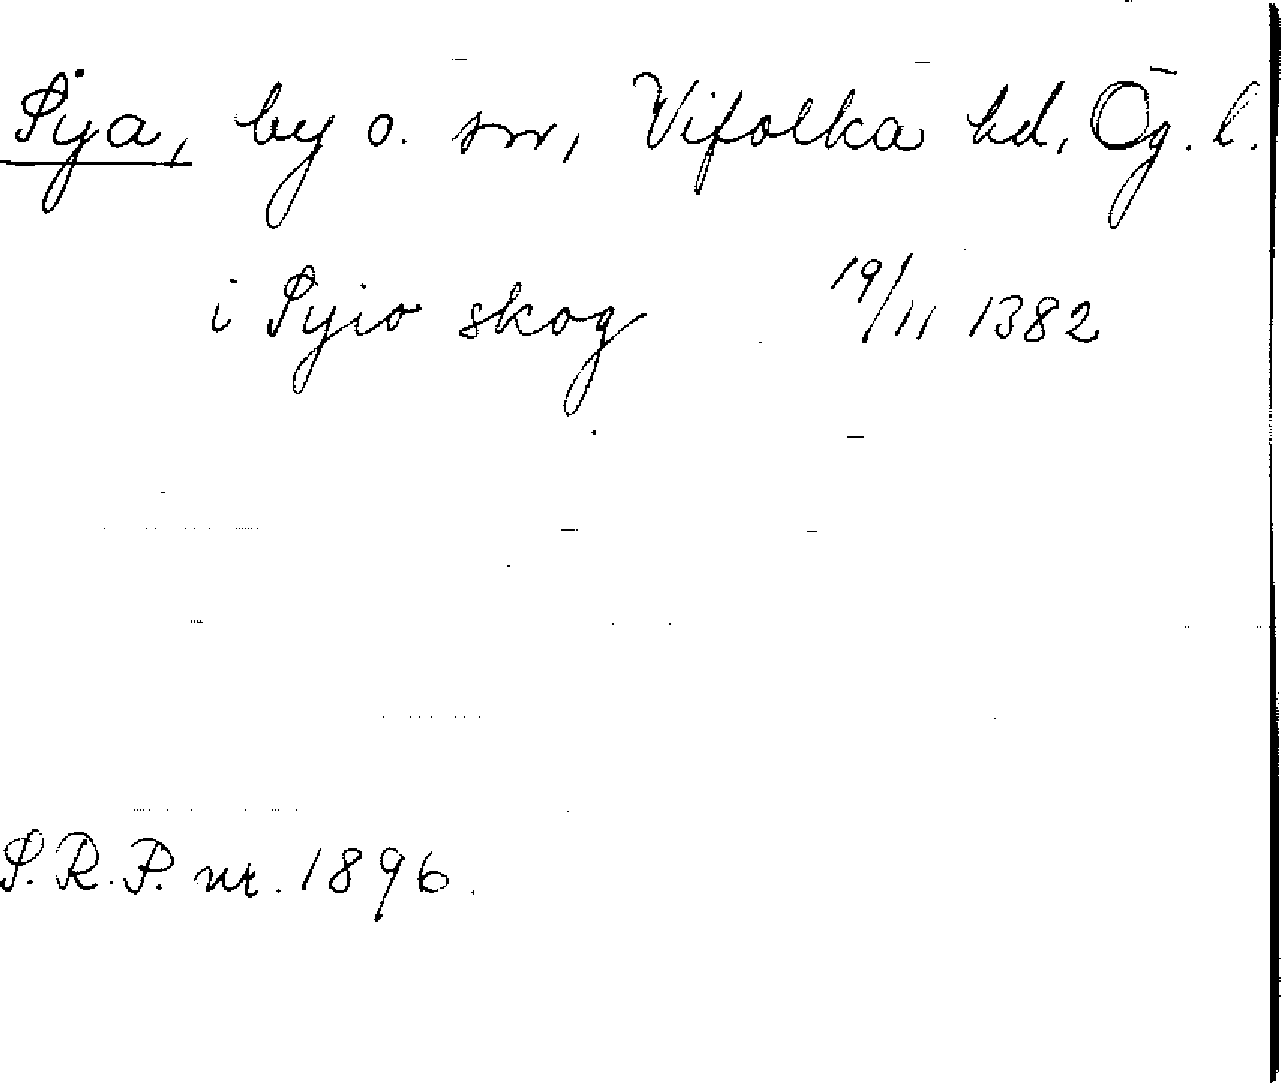 Sya, by o. sn, Vifolka hd, Ög. l.
i Syio skog 19/11 1382
S.R.P. nr. 1896.